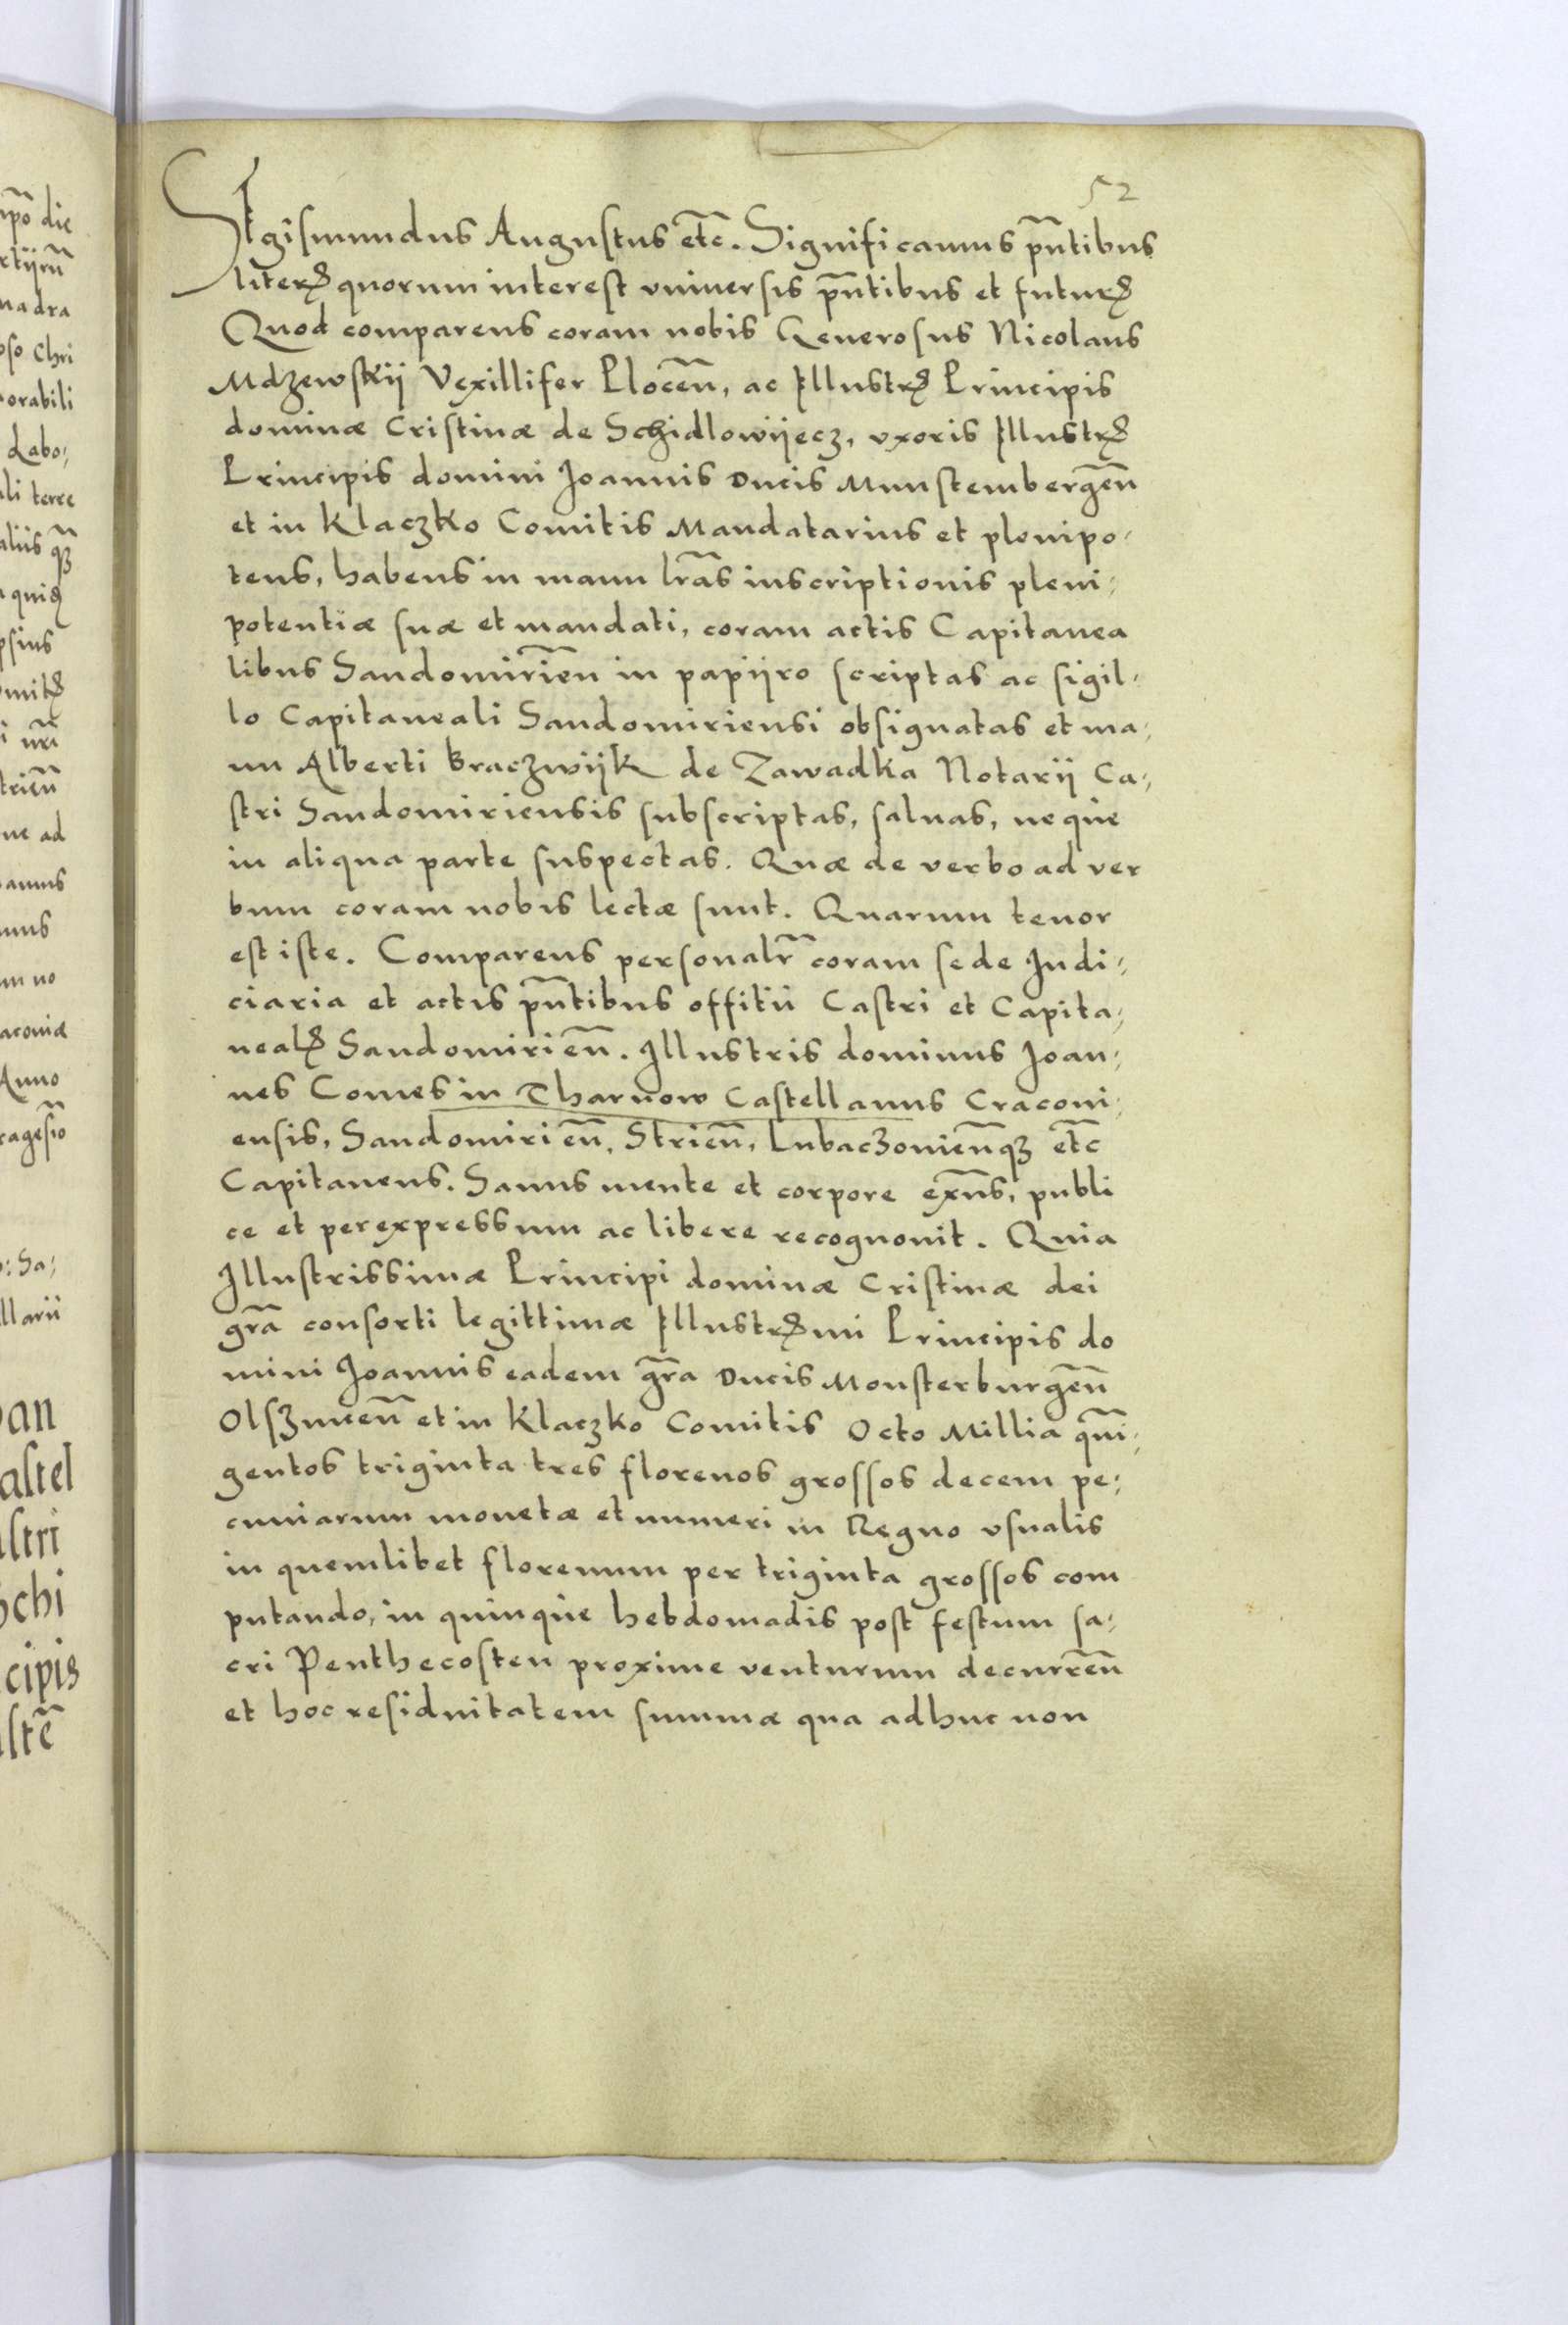 52
SIgismundus Augustus etc̃. Significamus pñtibus
literꝭ quorum interest vniuersis pñtibus et futurꝭ
Quod comparens coram nobis Generosus Nicolaus
Mdzewskij Vexillifer Plocen̄, ac Illustrꝭ Principis
dominæ Cristinæ de Schidlowijecz, vxoris Illustrꝭ
Principis domini Joannis Ducis Munstembergen̄
et in Klaczko Comitis Mandatarius et plenipo,
tens, habens in manu lr̃as inscriptionis pleni,
potentiæ suæ et mandati, coram actis Capitanea
libus Sandomirien̄ in papijro scriptas ac sigil,
lo Capitaneali Sandomiriensi obsignatas et ma,
nu Alberti Kraczwijk de Zawadka Notarij Ca,
stri Sandomiriensis subscriptas, saluas, neque
in aliqua parte suspectas. Quæ de verbo ad ver
bum coram nobis lectæ sunt. Quarum tenor
est iste. Comparens personalr̃ coram sede Iudi,
ciaria et actis pñtibus offitii Castri et Capita,
nealꝭ Sandomirien̄. Illustris dominus Joan,
nes Comes in Tharnow Castellanus Cracoui,
ensis, Sandomirien̄, Strien̄, Lubaczouien̄qꝫ etc̃
Capitaneus. Sanus mente et corpore exñs, publi
ce et perexpressum ac libere recognouit. Quia
Illustrissimæ Principi dominæ Cristinæ dei
gr̃a consorti legittimæ Illustrꝭmi Principis do
mini Joannis eadem gr̃a Ducis Monsterburgen̄
Olsznicen̄ et in Klaczko Comitis Octo Millia qui̅,
gentos triginta tres florenos grossos decem pe,
cuniarum monetæ et numeri in Regno vsualis
in quemlibet florenum per triginta grossos com
putando, in quinque hebdomadis post festum sa,
cri Penthecosten proxime venturum decurren̄
et hoc residuitatem summæ qua adhuc non